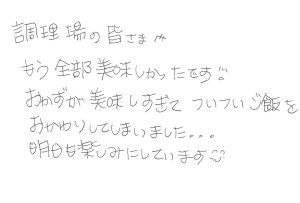 調理場の皆さまへ
もう全部美味しかったです!
おかずが美味しすぎてついついご飯を
おかわりしてしまいました...
明日も楽しみにしています